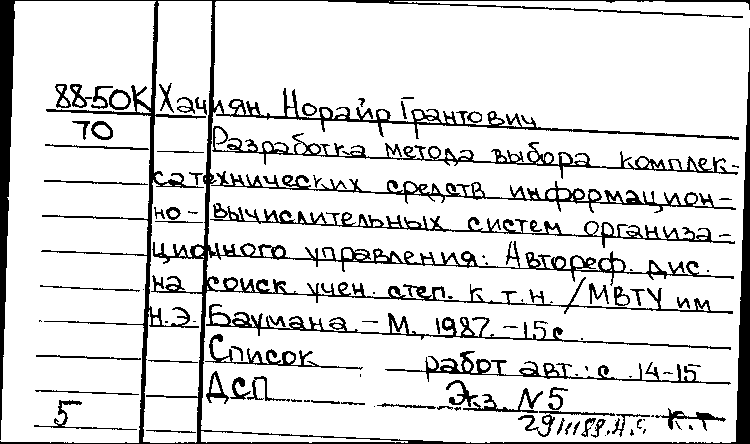 88-50К Хачиян, Норайр Грантович
70 Разработка метода выбора комплек-
са технических средств информацион-
но-вычислительных систем организа-
ционного управления: Автореф. дис.
на соиск. учен. степ. к.т.н. /МВТУ им
Н.Э. Баумана. – М., 1987. – 15с.
Список работ авт.: с. 14-15
ДСП Экз. N5
5 К.Т